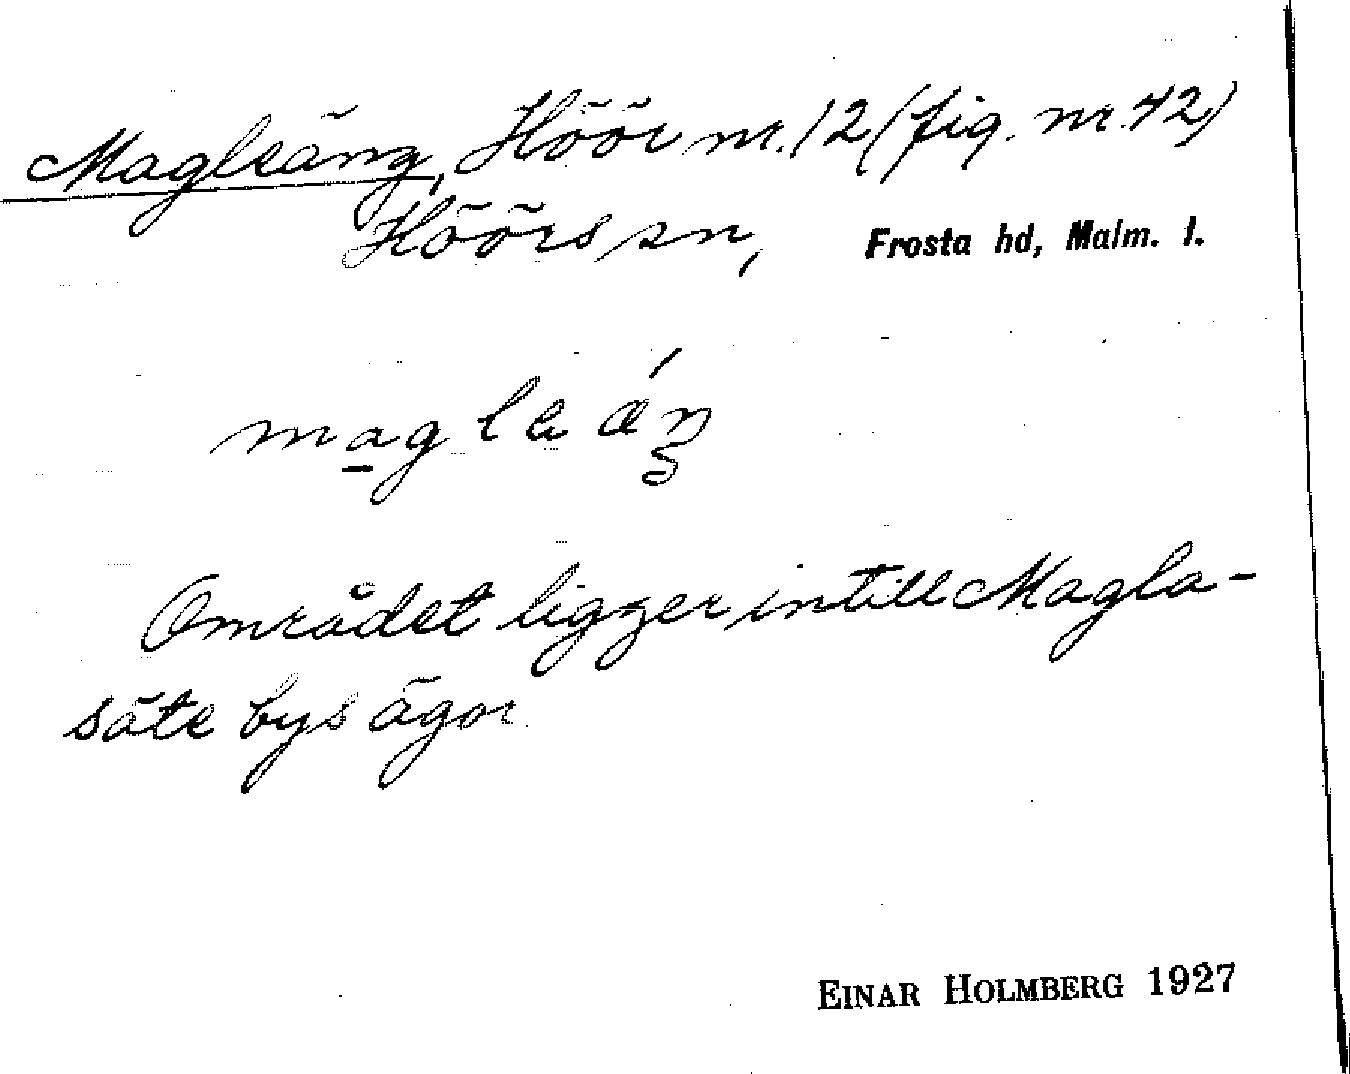 Magleäng, Höör nr. 12 (fig. nr. 42)
Höörs sn, Frosta hd, Malm. l.
Området ligger intill Magla-
säte bys ägor.
EINAR HOLMBERG 1927